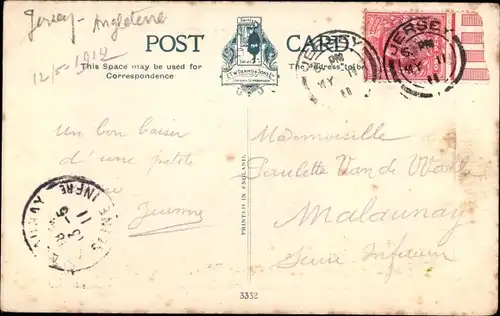 Jersey - Angleterre
12/5 - 1912
POST CARD.
This Space may be used for
Correspondence
The Address to be
JERSEY
PM
MY 11
11
JERSEY
PM
MY 11
11
Un bon baiser
d'une petite
Jeanne
Mademoiselle
Paulette Van de Walle
Malaunay
Seine Inférieure
MALAUNAY
SEINE INFRE
PRINTED IN ENGLAND.
3332